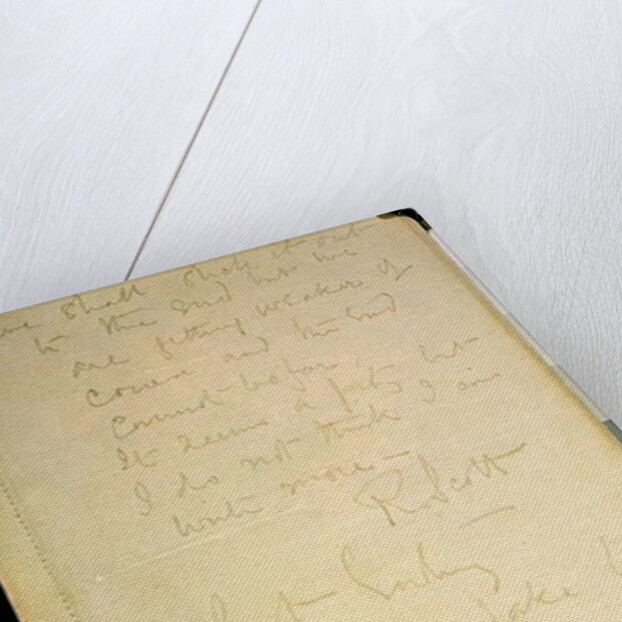 we shall stick it out
to the end but we
are getting weaker of
course and the end
cannot be far. but
It seems a pity but
I do not think I can
write more -
R. Scott
Last Entry